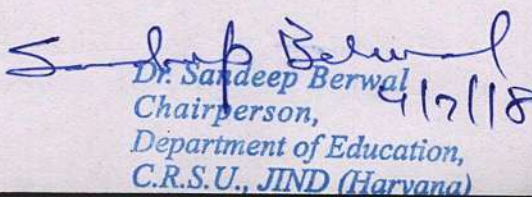 Sandeep Berwal
Dr. Sandeep Berwal
4/7/18
Chairperson,
Department of Education,
C.R.S.U., JIND (Haryana)